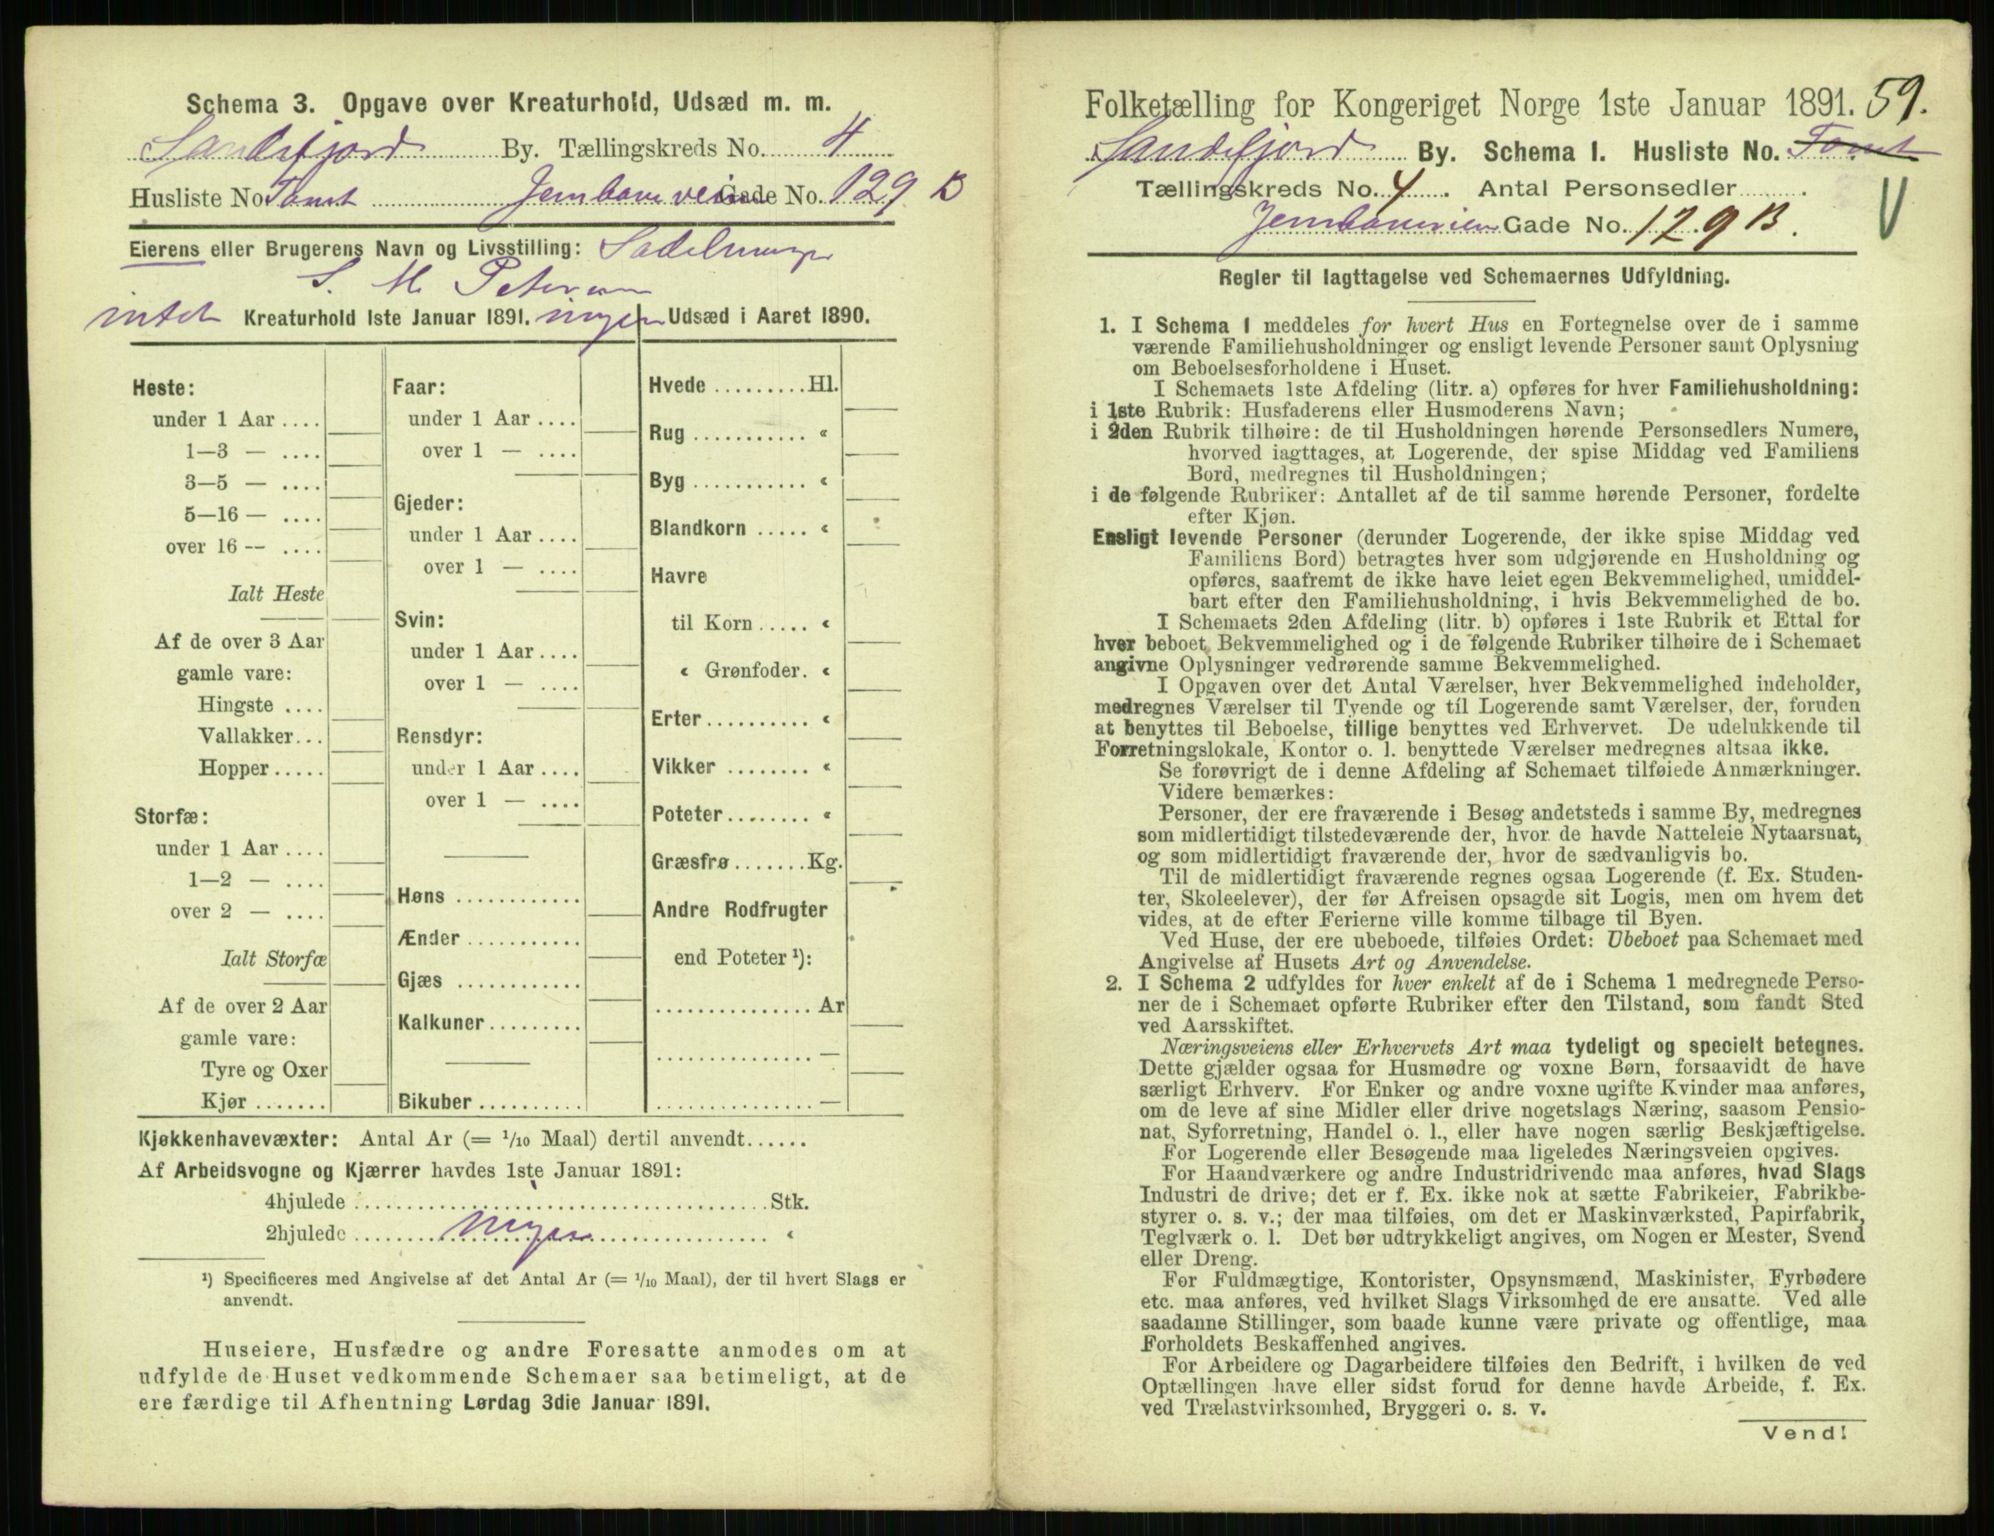 Schema 3. Opgave over Kreaturhold, Udsæd m. m.
Sandefjord By. Tællingskreds No. 4
Husliste No. Tomt Jernbaneveien Gade No. 129 B
Eierens eller Brugerens Navn og Livsstilling: Sadelmager
S. M. Petersen
intet Kreaturhold 1ste Januar 1891. ingen Udsæd i Aaret 1890.
Heste:
under 1 Aar ....
1—3 — ....
3—5 — ....
5—16 — ....
over 16 — ....
Ialt Heste
Af de over 3 Aar
gamle vare:
Hingste ....
Vallakker...
Hopper.....
Storfæ:
under 1 Aar ....
1—2 — ....
over 2 — ....
Ialt Storfæ
Af de over 2 Aar
gamle vare:
Tyre og Oxer
Kjør .......
Faar:
under 1 Aar ....
over 1 — ....
Gjeder:
under 1 Aar ....
over 1 — ....
Svin:
under 1 Aar ....
over 1 — ....
Rensdyr:
under 1 Aar ....
over 1 — ....
Høns ............
Ænder ...........
Gjæs ............
Kalkuner.........
Bikuber..........
Hvede .........Hl.
Rug ........... «
Byg ........... «
Blandkorn ..... «
Havre
til Korn ..... «
« Grønfoder. «
Erter.......... «
Vikker ........ «
Poteter........ «
Græsfrø.......Kg.
Andre Rodfrugter
end Poteter ¹):
............... Ar
............... —
............... —
Kjøkkenhavevæxter: Antal Ar (= 1/10 Maal) dertil anvendt......
Af Arbeidsvogne og Kjærrer havdes 1ste Januar 1891:
4hjulede ..................................... Stk.
2hjulede ........ ingen .................. «
¹) Specificeres med Angivelse af det Antal Ar (= 1/10 Maal), der til hvert Slags er
anvendt.
Huseiere, Husfædre og andre Foresatte anmodes om at
udfylde de Huset vedkommende Schemaer saa betimeligt, at de
ere færdige til Afhentning Lørdag 3die Januar 1891.
Folketælling for Kongeriget Norge 1ste Januar 1891. 59.
Sandefjord By. Schema I. Husliste No. Tomt
Tællingskreds No. 4. Antal Personsedler .........
Jernbaneveien Gade No. 129 B.
Regler til Iagttagelse ved Schemaernes Udfyldning.
1. I Schema 1 meddeles for hvert Hus en Fortegnelse over de i samme
værende Familiehusholdninger og ensligt levende Personer samt Oplysning
om Beboelsesforholdene i Huset.
I Schemaets 1ste Afdeling (litr. a) opføres for hver Familiehusholdning:
i 1ste Rubrik: Husfaderens eller Husmoderens Navn;
i 2den Rubrik tilhøire: de til Husholdningen hørende Personsedlers Numere,
hvorved iagttages, at Logerende, der spise Middag ved Familiens
Bord, medregnes til Husholdningen;
i de følgende Rubriker: Antallet af de til samme hørende Personer, fordelte
efter Kjøn.
Ensligt levende Personer (derunder Logerende, der ikke spise Middag ved
Familiens Bord) betragtes hver som udgjørende en Husholdning og
opføres, saafremt de ikke have leiet egen Bekvemmelighed, umiddel-
bart efter den Familiehusholdning, i hvis Bekvemmelighed de bo.
I Schemaets 2den Afdeling (litr. b) opføres i 1ste Rubrik et Ettal for
hver beboet Bekvemmelighed og i de følgende Rubriker tilhøire de i Schemaet
angivne Oplysninger vedrørende samme Bekvemmelighed.
I Opgaven over det Antal Værelser, hver Bekvemmelighed indeholder,
medregnes Værelser til Tyende og til Logerende samt Værelser, der, foruden
at benyttes til Beboelse, tillige benyttes ved Erhvervet. De udelukkende til
Forretningslokale, Kontor o. l. benyttede Værelser medregnes altsaa ikke.
Se forøvrigt de i denne Afdeling af Schemaet tilføiede Anmærkninger.
Videre bemærkes:
Personer, der ere fraværende i Besøg andetsteds i samme By, medregnes
som midlertidigt tilstedeværende der, hvor de havde Natteleie Nytaarsnat,
og som midlertidigt fraværende der, hvor de sædvanligvis bo.
Til de midlertidigt fraværende regnes ogsaa Logerende (f. Ex. Studen-
ter, Skoleelever), der før Afreisen opsagde sit Logis, men om hvem det
vides, at de efter Ferierne ville komme tilbage til Byen.
Ved Huse, der ere ubeboede, tilføies Ordet: Ubeboet paa Schemaet med
Angivelse af Husets Art og Anvendelse.
2. I Schema 2 udfyldes for hver enkelt af de i Schema 1 medregnede Perso-
ner de i Schemaet opførte Rubriker efter den Tilstand, som fandt Sted
ved Aarsskiftet.
Næringsveiens eller Erhvervets Art maa tydeligt og specielt betegnes.
Dette gjælder ogsaa for Husmødre og voxne Børn, forsaavidt de have
særligt Erhverv. For Enker og andre voxne ugifte Kvinder maa anføres,
om de leve af sine Midler eller drive nogetslags Næring, saasom Pensio-
nat, Syforretning, Handel o. l., eller have nogen særlig Beskjæftigelse.
For Logerende eller Besøgende maa ligeledes Næringsveien opgives.
For Haandværkere og andre Industridrivende maa anføres, hvad Slags
Industri de drive; det er f. Ex. ikke nok at sætte Fabrikeier, Fabrikbe-
styrer o. s. v.; der maa tilføies, om det er Maskinværksted, Papirfabrik,
Teglværk o. l. Det bør udtrykkeligt angives, om Nogen er Mester, Svend
eller Dreng.
For Fuldmægtige, Kontorister, Opsynsmænd, Maskinister, Fyrbødere
etc. maa anføres, ved hvilket Slags Virksomhed de ere ansatte. Ved alle
saadanne Stillinger, som baade kunne være private og offentlige, maa
Forholdets Beskaffenhed angives.
For Arbeidere og Dagarbeidere tilføies den Bedrift, i hvilken de ved
Optællingen have eller sidst forud for denne havde Arbeide, f. Ex.
ved Trælastvirksomhed, Bryggeri o. s. v.
Vend!